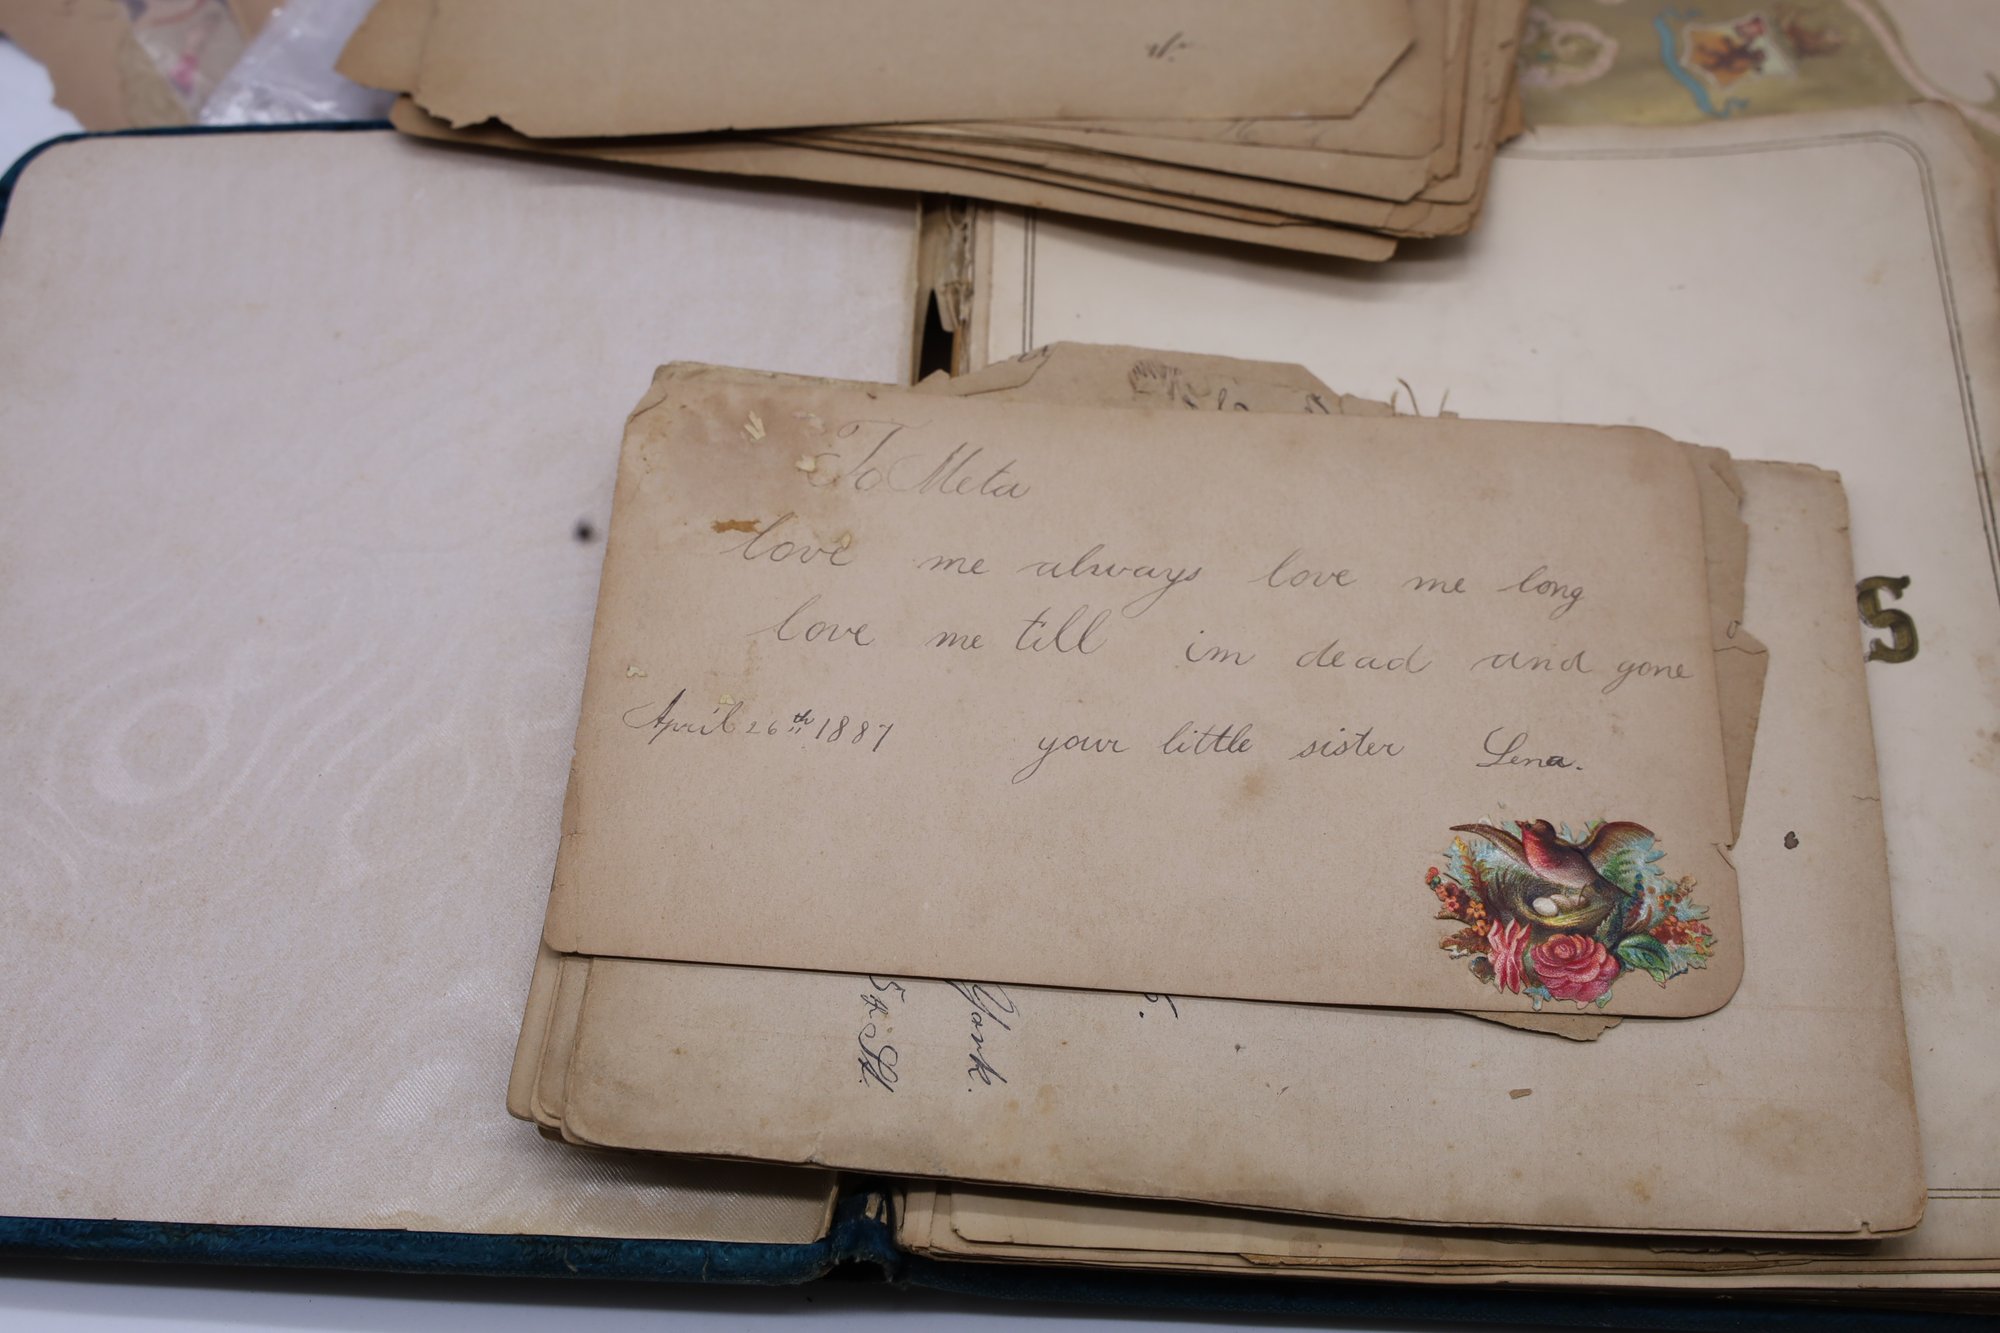 To Meta
love me always love me long
love me till im dead and gone
April 26th 1887 your little sister Lena.
York.
St.
S